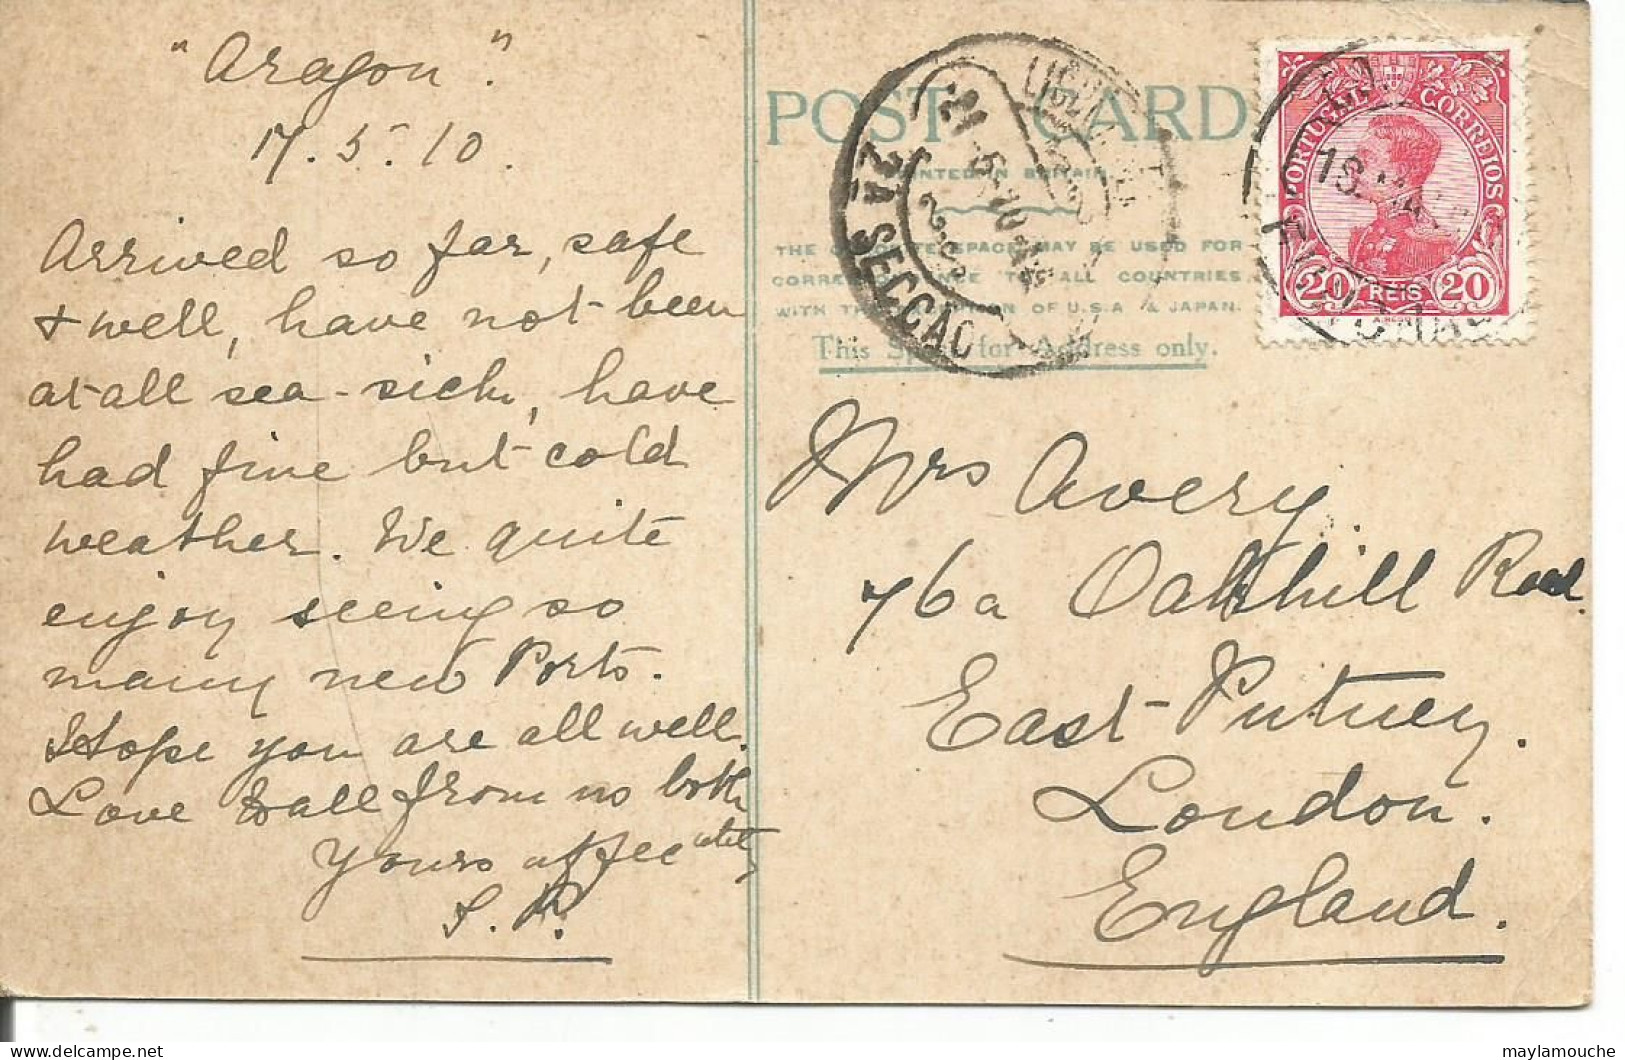 "Aragon".
17.5.10.
Arrived so far, safe
& well, have not been
at all sea-sick, have
had fine but cold
weather. We quite
enjoy seeing so
many new Ports.
Hope you are all well.
Love to all from us both
Yours affectately
POST CARD
PRINTED IN BRITAIN.
THE OPPOSITE SPACE MAY BE USED FOR
CORRESPONDENCE TO ALL COUNTRIES
WITH THE EXCEPTION OF U.S.A & JAPAN.
This Space for Address only.
2A SECCAO
PORTUGAL CORREIOS
20 REIS 20
Mrs Avery
76a Oakhill Road.
East Putney.
London.
England.
maylamouche